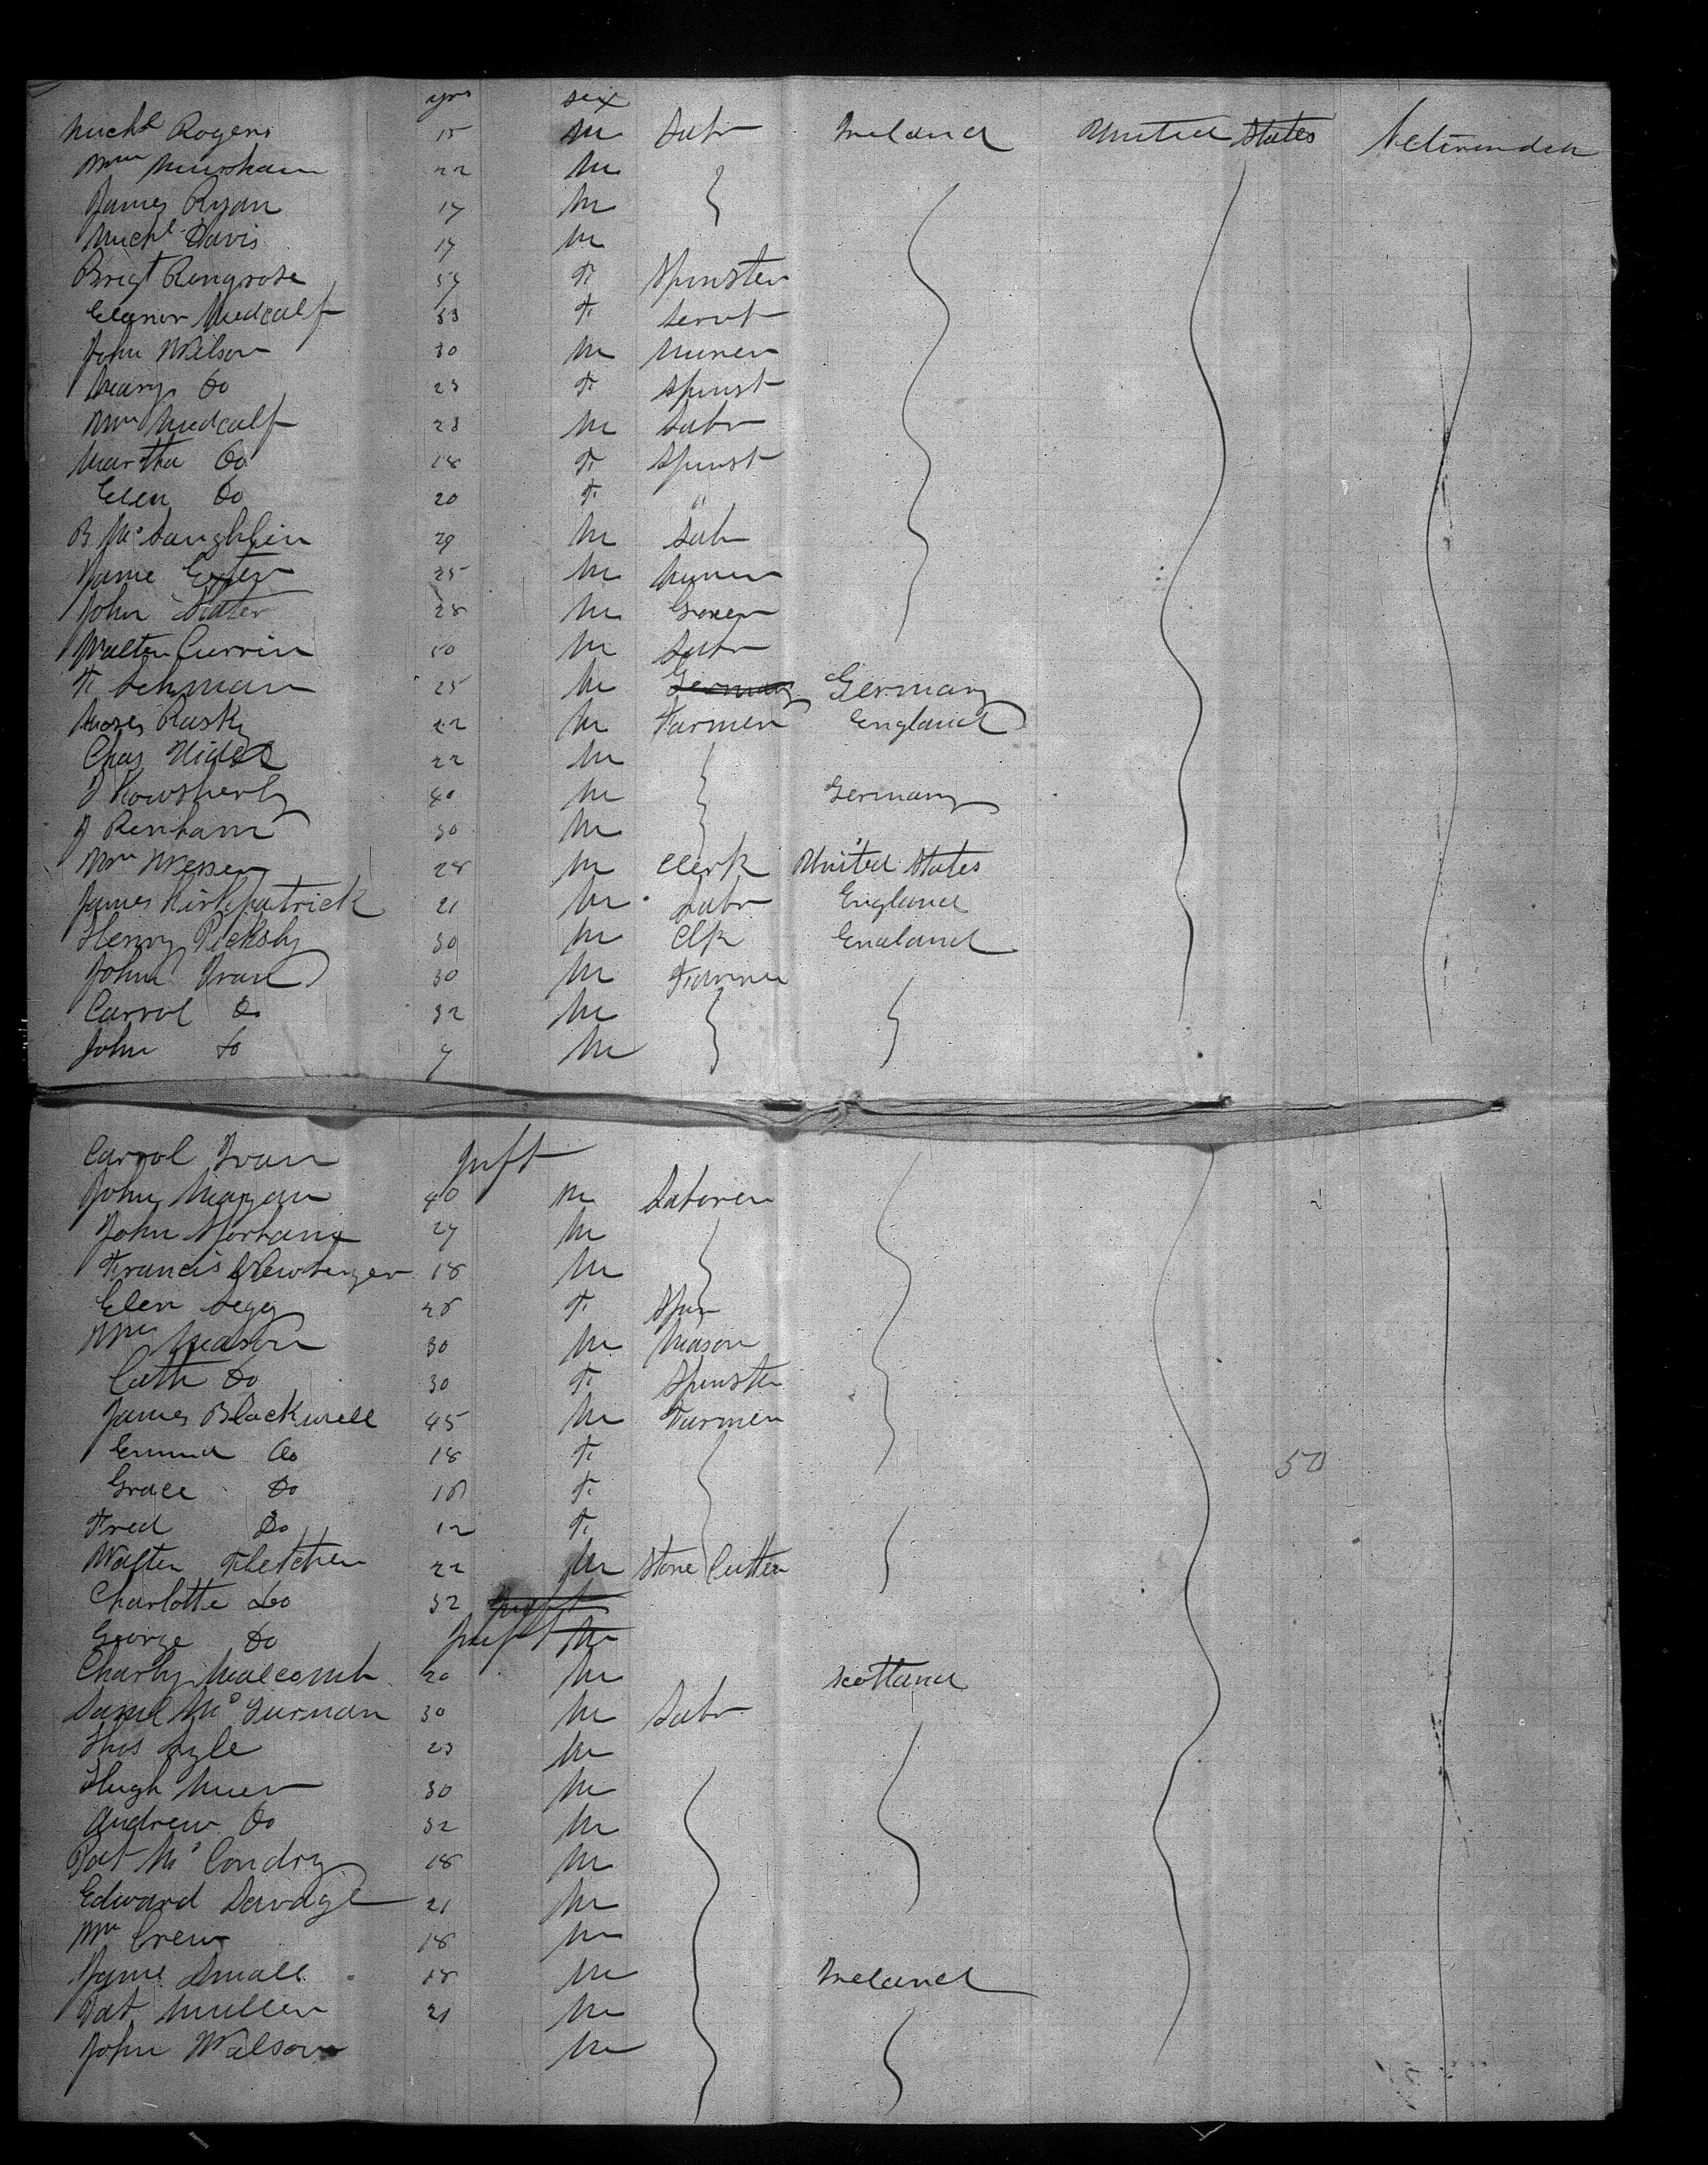 yrs sex
Michl Rogers 15 M Labr Ireland United States
Wm 22 M
James Ryan 17 M
Michl Davis 17 M
Brigt Rengrose 54 F Spinster
Eleanor Medcalf 33 F Servt
John Wilson 30 M Miner
Mary Do 23 F Spinst
Wm Medcalf 23 M Labr
Martha Do 18 F Spinst
Elen Do 20 F "
B McLaughlin 29 M Lab
Jame 25 M Miner
John Slater 28 M
Walter Currin 50 M Labr
F Lehman 25 M Germany Germany
Moses Rusk 22 M Farmer England
Chas 22 M
40 M Germany
J Renham 30 M
Wm 28 M Clerk United States
James Kirkpatrick 21 M Labr England
Henry Picksly 30 M Clk England
John Ivan 30 M Farmer
Carrol Do 32 M
John Do 7 M
Carrol Ivan Inft
John Morgan 40 M Laborer
John 27 M
Francis 18 M
Elen Legg 28 F Spin
Wm Meason 30 M Mason
Cath Do 30 F Spinster
James Blackwell 45 M Farmer
Emma Do 18 F
50
Grace Do F
Fred Do 12 F
Walter Fletcher 22 M Stone Cutter
Charlotte Do 32 Inft
George Do Inft M
Charly Malcomb 20 M Scotland
Danil Mc Gurman 30 M Labr
Thos Lyle 23 M
Hugh Muer 30 M
Andrew Do 32 M
Pat Mc Condry 18 M
Edward Savage 21 M
Wm Crew 18 M
Jame Small 18 M Ireland
Pat Mullen 21 M
John Wilson M